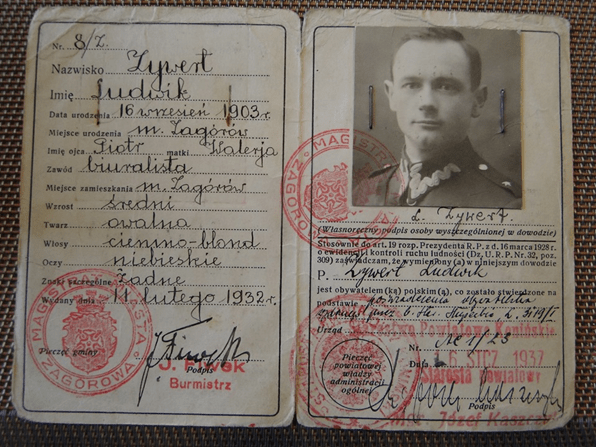 Nr. 8/Z.
Nazwisko Zywert
Imię Ludwik
Data urodzenia 16 wrzesień 1903 r
Miejsce urodzenia m. Zagórów
Imię ojca Piotr matki Walerja
Zawód biuralista
Miejsce zamieszkania m. Zagórów
Wzrost średni
Twarz owalna
Włosy ciemno-blond
Oczy niebieskie
Znaki szczególne Żadne
Wydany dnia 11 lutego 1932 r.
Pieczęć gminy
Podpis
Burmistrz
MAGISTRAT MIASTA ZAGÓROWA
MAGISTRAT ZAGÓROWA
L. Zywert.
(Własnoręczny podpis osoby wyszczególnionej w dowodzie)
Stosownie do art. 19 rozp. Prezydenta R. P. z d. 16 marca 1928 r.
o ewidencji i kontroli ruchu ludności (Dz. U. R. P. Nr. 32, poz.
309) zaświadczam, że wymieniony (a) w niniejszym dowodzie
P. Zywert Ludwik
jest obywatelem (ką) polskim (ą), co zostało stwierdzone na
podstawie poświadczenia obywatelstwa
Urząd
Nr.
Pieczęć
powiatowej
władzy
administracji
ogólnej
Data 6 STYCZ 1937
Starosta Powiatowy
Podpis
mgr. Józef